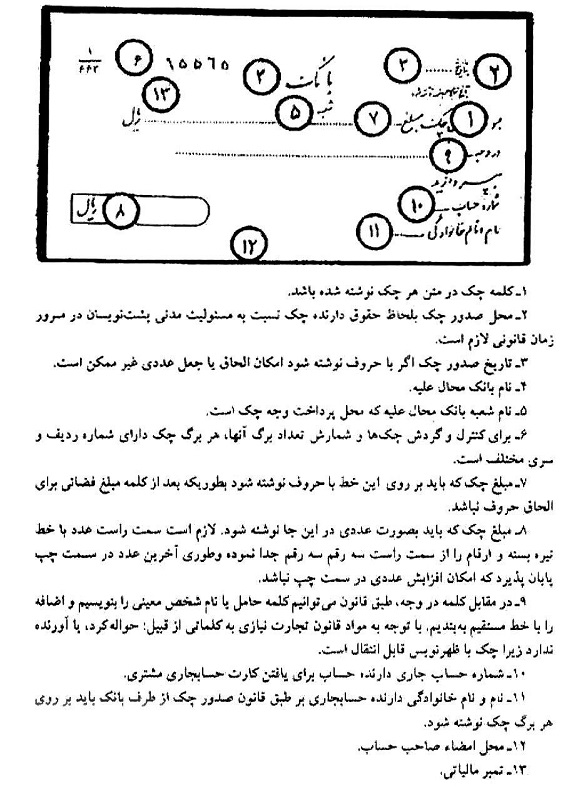 ۱
۶۶۳
۶
۶۵۵۶۵
۱۳
بانک
۴
شعبه
۵
تاریخ
۳
۲
۱
چک مبلغ
۷
ریال
در وجه
۹
بپردازید
شماره حساب
۱۰
نام و نام خانوادگی
۱۱
۸
ریال
۱۲
۱ـ کلمه چک در متن هر چک نوشته شده باشد.
۲ـ محل صدور چک بلحاظ حقوق دارنده چک نسبت به مسئولیت مدنی پشت‌نویسان در مرور
زمان قانونی لازم است.
۳ـ تاریخ صدور چک اگر با حروف نوشته شود امکان الحاق یا جعل عددی غیر ممکن است.
۴ـ نام بانک محال علیه.
۵ـ نام شعبه بانک محال علیه که محل پرداخت وجه چک است.
۶ـ برای کنترل و گردش چک‌ها و شمارش تعداد برگ آنها، هر برگ چک دارای شماره ردیف و
سری مختلف است.
۷ـ مبلغ چک که باید بر روی این خط با حروف نوشته شود بطوریکه بعد از کلمه مبلغ فضائی برای
الحاق حروف نباشد.
۸ـ مبلغ چک که باید بصورت عددی در این جا نوشته شود. لازم است سمت راست عدد با خط
تیره بسته و ارقام را از سمت راست سه رقم سه رقم جدا نموده وطوری آخرین عدد در سمت چپ
پایان پذیرد که امکان افزایش عددی در سمت چپ نباشد.
۹ـ در مقابل کلمه در وجه، طبق قانون می‌توانیم کلمه حامل یا نام شخص معینی را بنویسیم و اضافه
را با خط مستقیم به‌بندیم. با توجه به مواد قانون تجارت نیازی به کلماتی از قبیل: حواله‌کرد، یا آورنده
ندارد زیرا چک با ظهرنویس قابل انتقال است.
۱۰ـ شماره حساب جاری دارنده حساب برای یافتن کارت حسابجاری مشتری.
۱۱ـ نام و نام خانوادگی دارنده حسابجاری بر طبق قانون صدور چک از طرف بانک باید بر روی
هر برگ چک نوشته شود.
۱۲ـ محل امضاء صاحب حساب.
۱۳ـ تمبر مالیاتی.